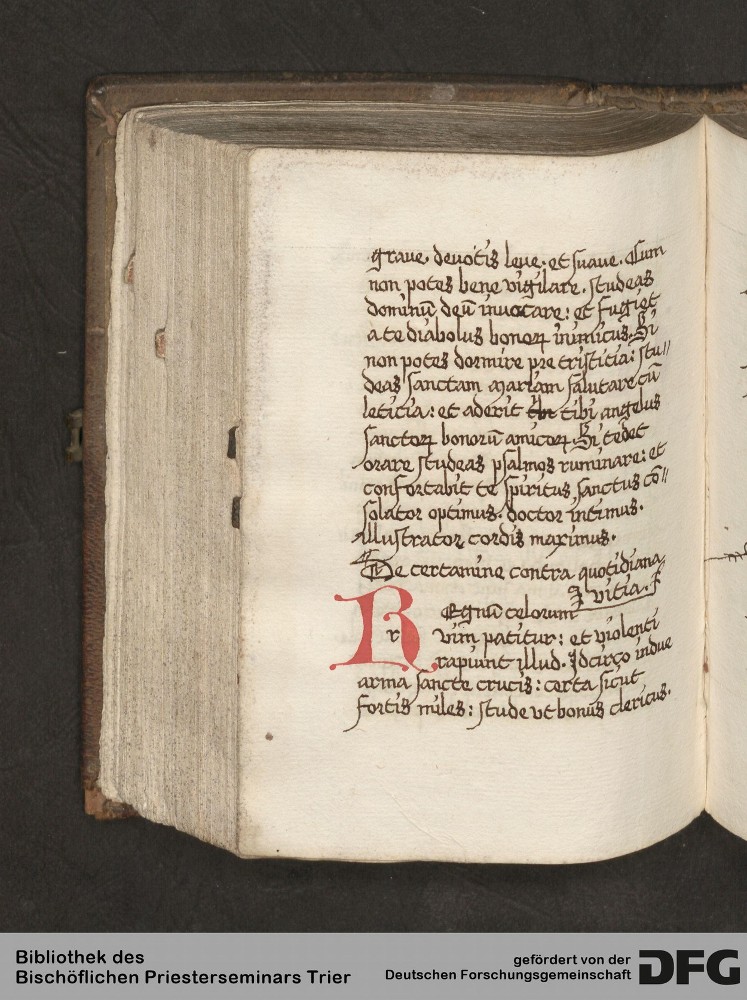 graue. deuotis leue. et suaue. Cum
non potes bene vigilare. studeas
dominū deū inuocare: et fugiet
a te diabolus bonoꝝ inimicus. Si
non potes dormire pre tristicia: stu//
deas sanctam mariam salutare cū
leticia: et aderit tibi angelus
sanctoꝝ bonorū amicoꝝ. Si tedet
orare studeas psalmos ruminare: et
confortabit te spiritus sanctus cō//
solator optimus. doctor intimus.
illustrator cordis maximus.
De certamine contra quotidiana
vitia.
REgnū celorum
r
vim patitur: et violenti
rapiunt illud. Idcirco indue
arma sancte crucis: certa sicut
fortis miles: stude vt bonus clericus.
Bibliothek des
Bischöflichen Priesterseminars Trier
gefördert von der
Deutschen Forschungsgemeinschaft
DFG